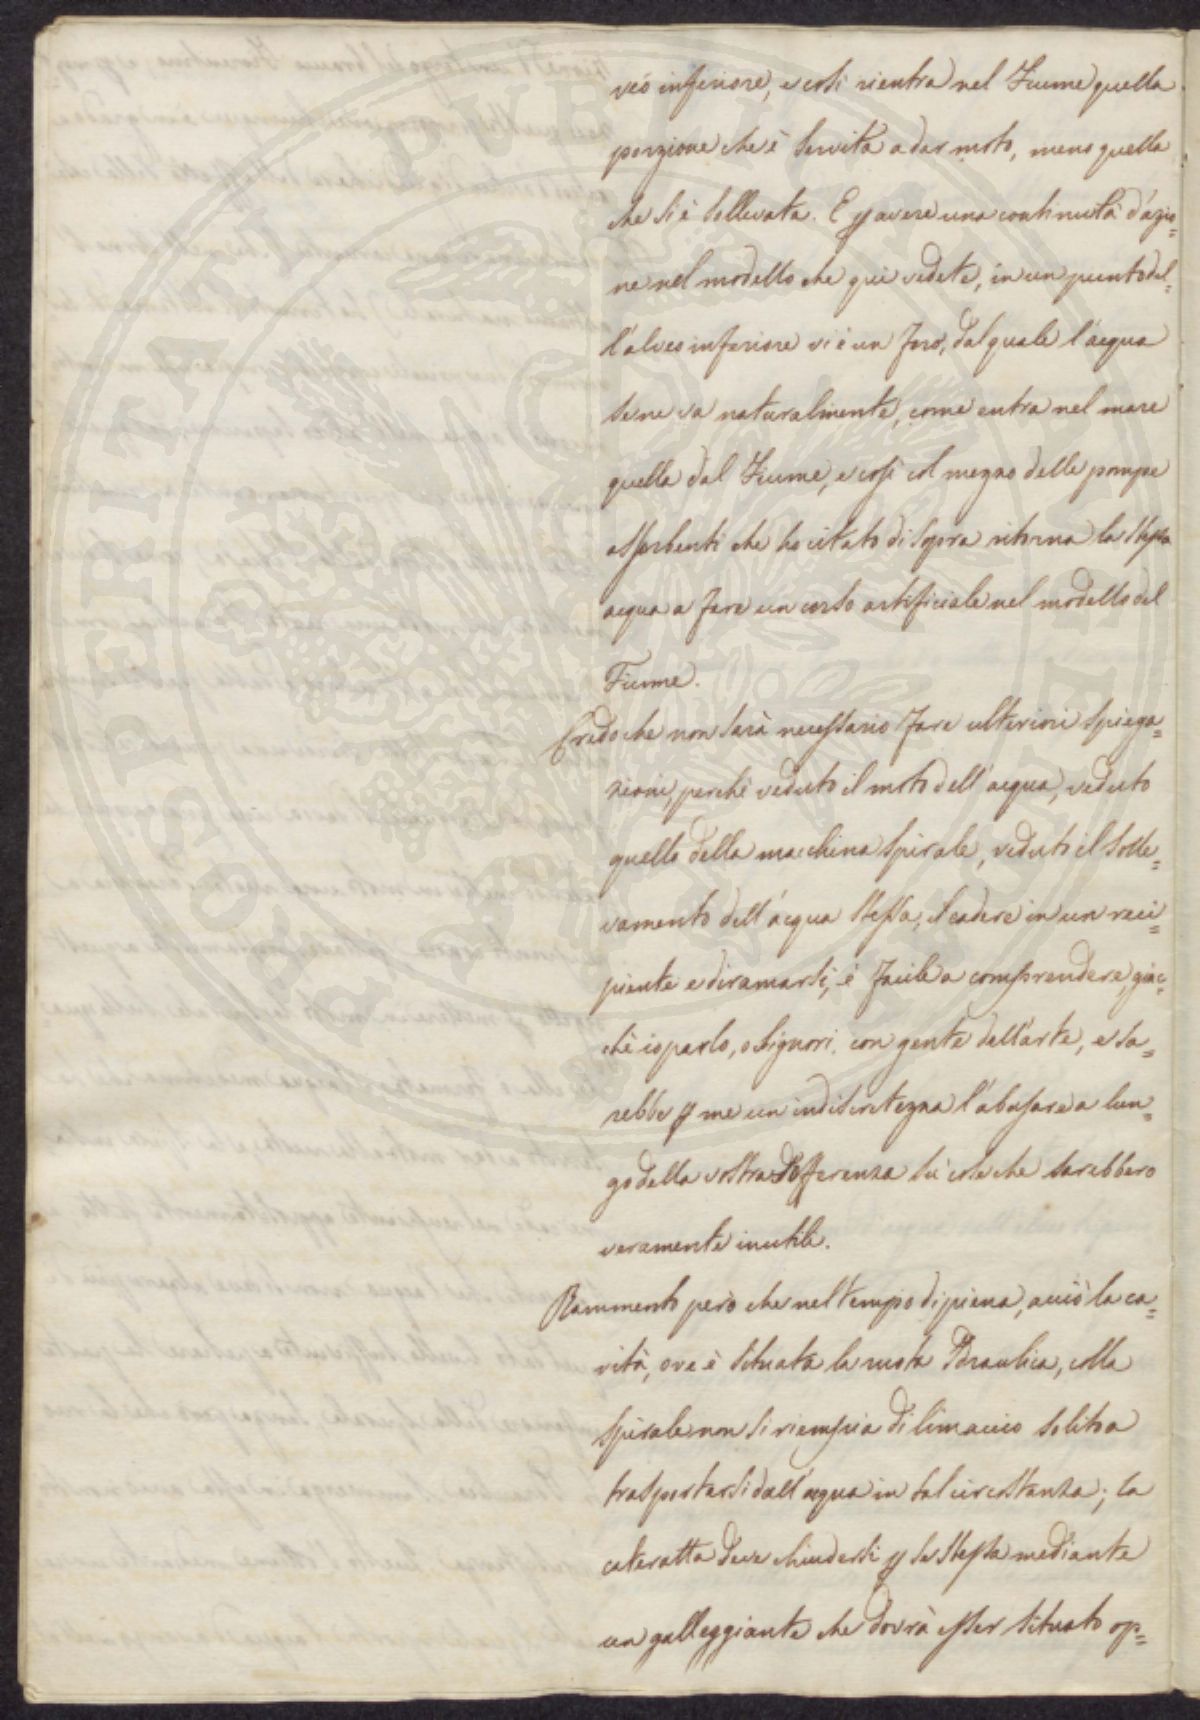 veo inferiore, e così rientra nel Fiume quella
porzione che è servita a dar moto, meno quella
che si è sollevata. E p avere una continuità d'azio=
ne nel modello che quì vedete, in un punto del=
l'alveo inferiore vi è un foro, dal quale l'acqua
se ne va naturalmente, come entra nel mare
quella dal Fiume, e così col mezzo delle pompe
assorbenti che ho citato di sopra ritorna la stessa
acqua a fare un corso artificiale nel modello del
Fiume.
Credo che non sarà necessario fare ulteriori spiega=
zioni, perchè veduto il moto dell'acqua, veduto
quello della macchina spirale, veduto il solle=
vamento dell'acqua stessa, il cadere in un reci=
piente e diramarsi, è facile a comprendere, giac=
chè io parlo, o Signori, con gente dell'arte, e sa=
rebbe p me un indiscretezza l'abusare a lun=
go della vostra defferenza su cose che sarebbero
veramente inutili.
Rammento però che nel tempo di piena, acciò la ca=
vità, ove è situata la ruota Idraulica, colla
spirale non si riempia di limaccio solito a
trasportarsi dall'acqua in tal circostanza; la
cateratta deve chiudersi p se stessa mediante
un galleggiante che dovrà esser situato op=
PROSPERITATI PVBLICAE